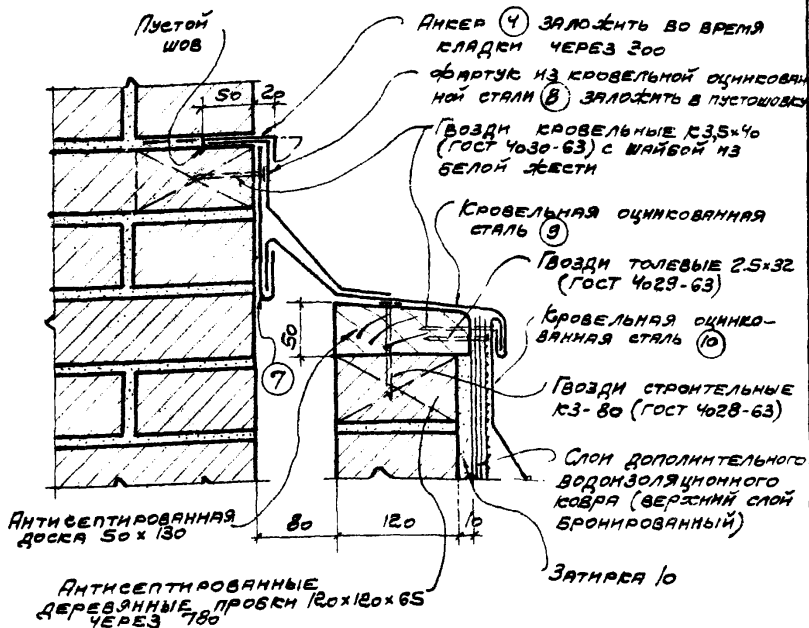 Пустой
шов
Анкер 4 заложить во время
кладки через 300
Фартук из кровельной оцинкован
ной стали 8 заложить в пустошовку
50 20
Гвозди кровельные К3,5х40
(ГОСТ 4030-63) с шайбой из
белой жести
Кровельная оцинкованная
сталь 9
Гвозди толевые 2.5х32
(ГОСТ 4029-63)
50
Кровельная оцинко-
ванная сталь 10
7
Гвозди строительные
К3-80 (ГОСТ 4028-63)
Слои дополнительного
водоизоляционного
ковра (верхний слой
бронированный)
Антисептированная
доска 50 х 130
80 120 10
Затирка 10
Антисептированные
деревянные пробки 120х120х65
через 780